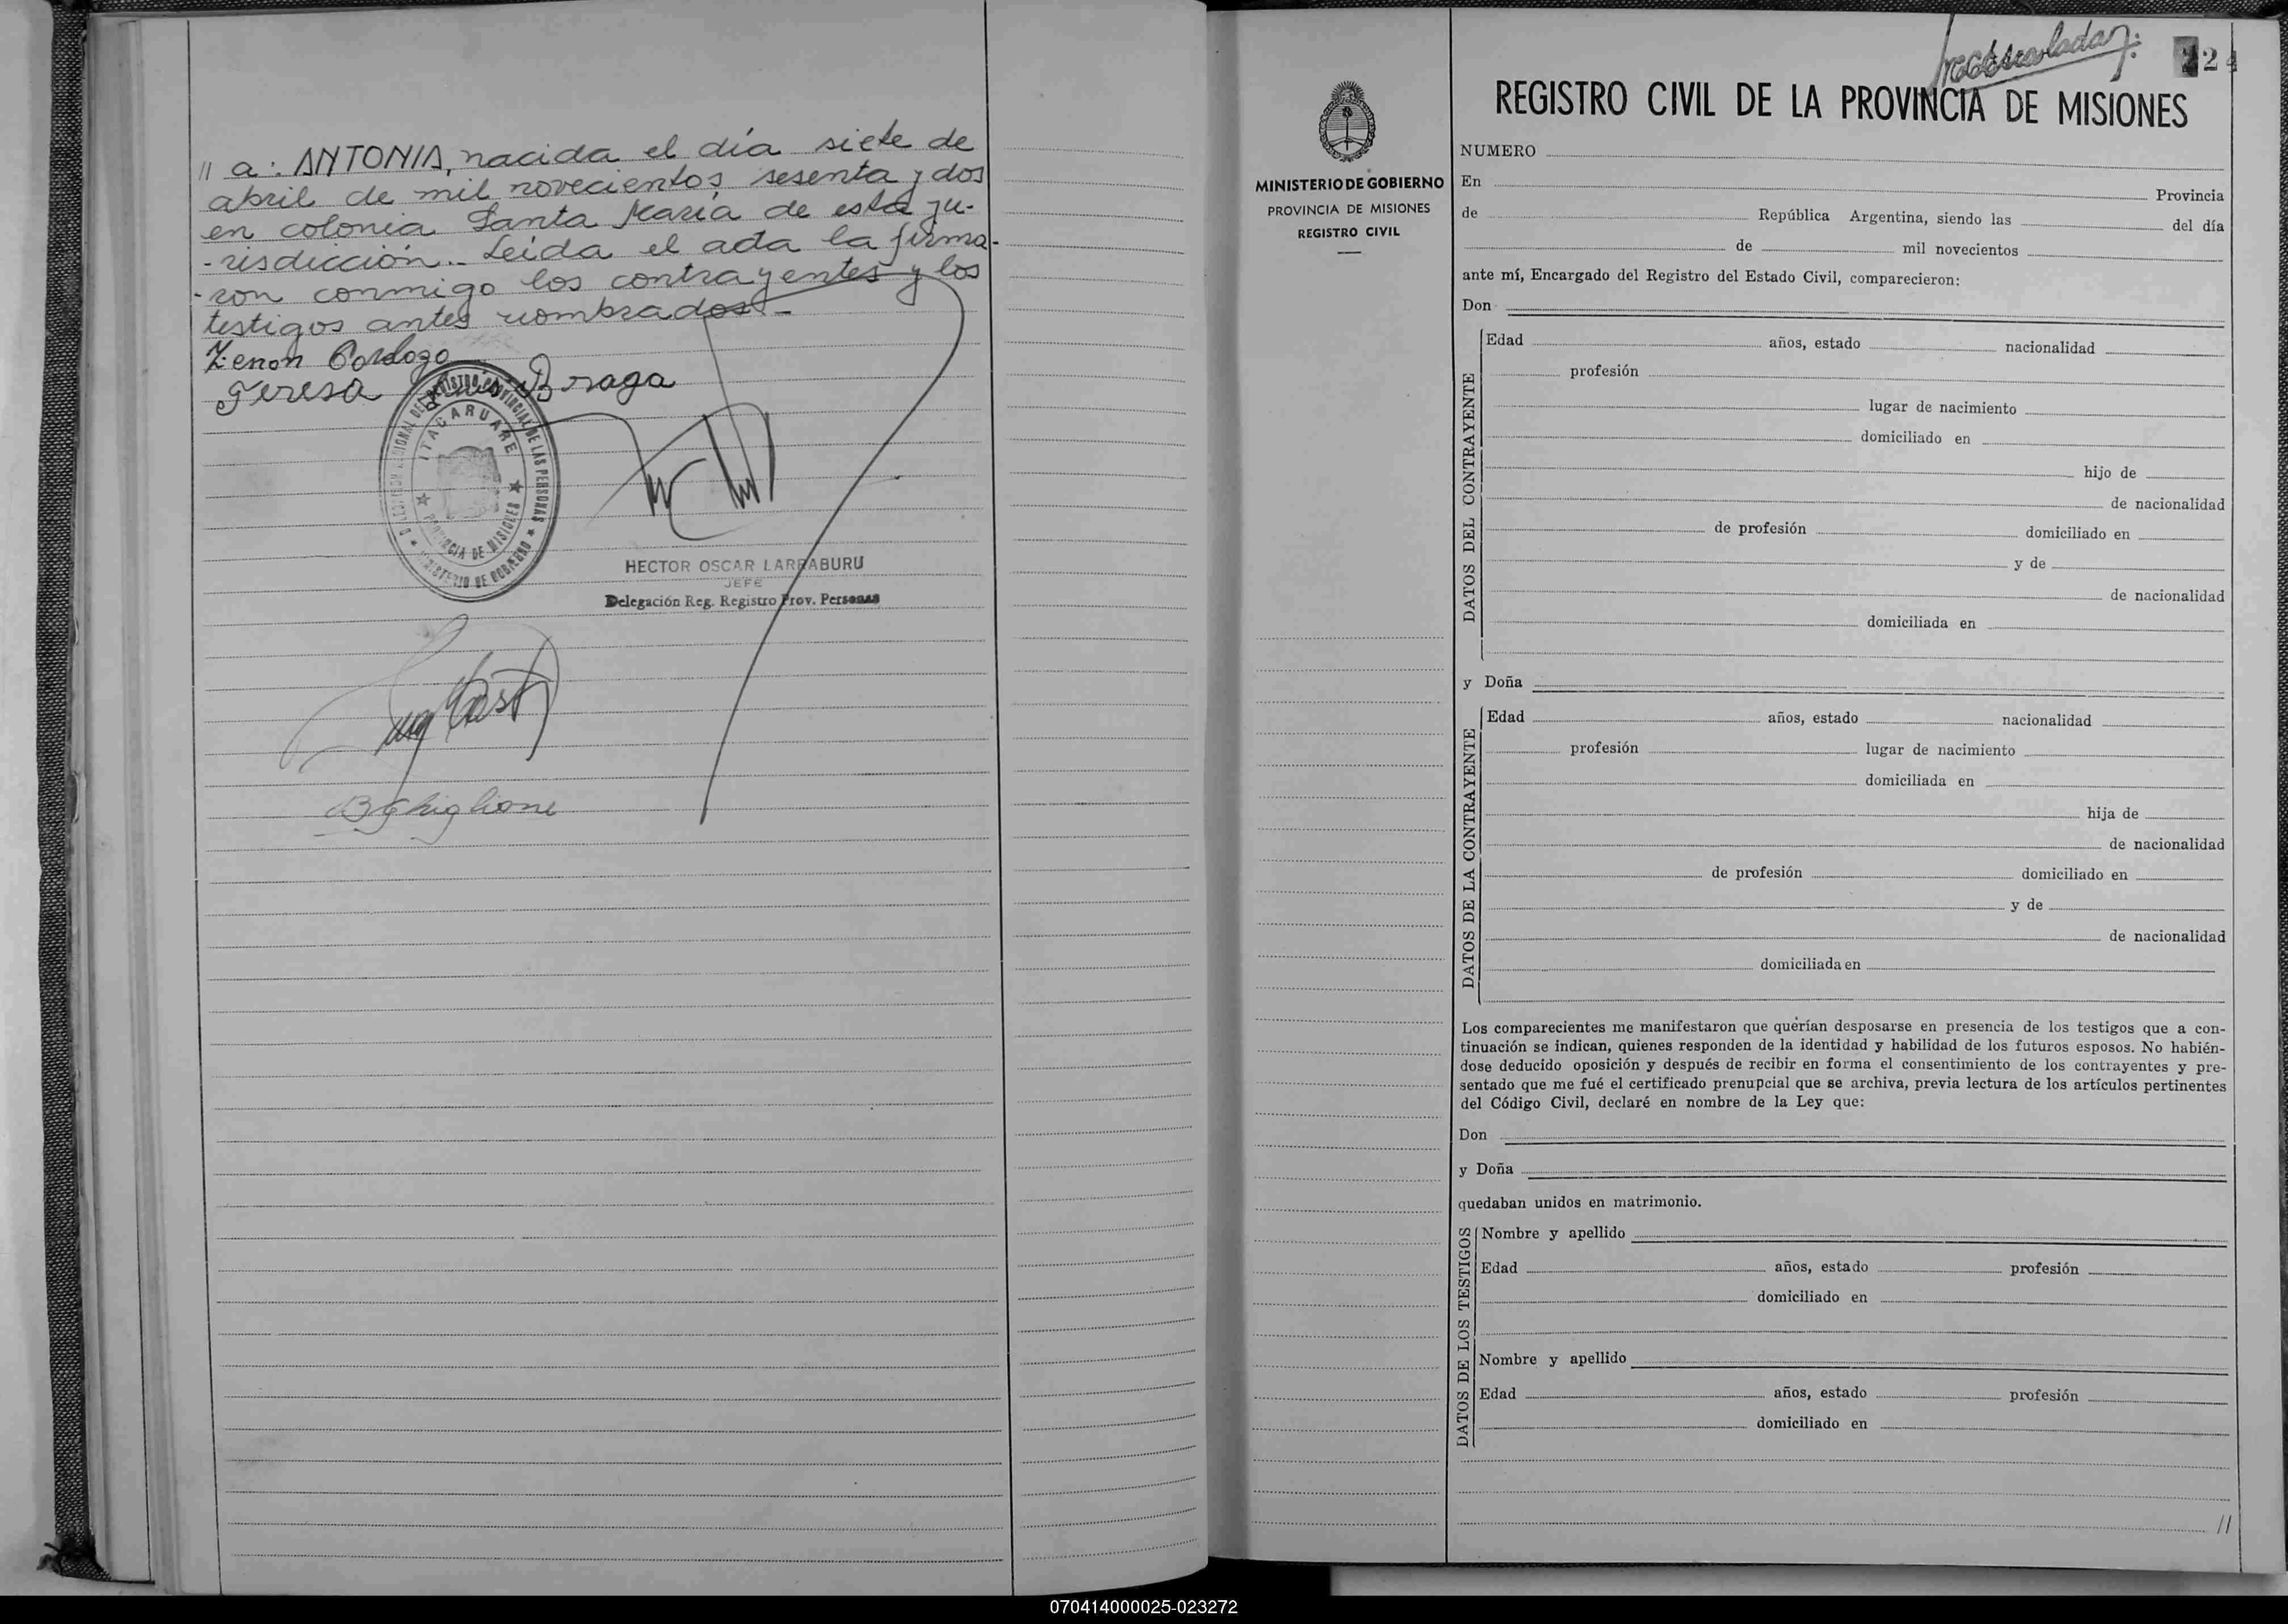 // a: ANTONIA, nacida el día siete de
abril de mil novecientos sesenta y dos
en colonia Santa María de esta ju-
-risdicción.- Leída el acta la firma-
-ron conmigo los contrayentes y los
testigos antes nombrados.-
Zenon Cardozo
Teresa Braga
ITACARUARE
PROVINCIA DE MISIONES
MINISTERIO DE GOBIERNO
HECTOR OSCAR LARRABURU
JEFE
Delegación Reg. Registro Prov. Personas
B Ghiglione
MINISTERIO DE GOBIERNO
PROVINCIA DE MISIONES
REGISTRO CIVIL
24
REGISTRO CIVIL DE LA PROVINCIA DE MISIONES
NUMERO
En Provincia
de República Argentina, siendo las del día
de mil novecientos
ante mí, Encargado del Registro del Estado Civil, comparecieron:
Don
DATOS DEL CONTRAYENTE
Edad años, estado nacionalidad
profesión
lugar de nacimiento
domiciliado en
hijo de
de nacionalidad
de profesión domiciliado en
y de
de nacionalidad
domiciliada en
y Doña
DATOS DE LA CONTRAYENTE
Edad años, estado nacionalidad
profesión lugar de nacimiento
domiciliada en
hija de
de nacionalidad
de profesión domiciliado en
y de
de nacionalidad
domiciliada en
Los comparecientes me manifestaron que querían desposarse en presencia de los testigos que a con-
tinuación se indican, quienes responden de la identidad y habilidad de los futuros esposos. No habién-
dose deducido oposición y después de recibir en forma el consentimiento de los contrayentes y pre-
sentado que me fué el certificado prenupcial que se archiva, previa lectura de los artículos pertinentes
del Código Civil, declaré en nombre de la Ley que:
Don
y Doña
quedaban unidos en matrimonio.
DATOS DE LOS TESTIGOS
Nombre y apellido
Edad años, estado profesión
domiciliado en
Nombre y apellido
Edad años, estado profesión
domiciliado en
//
070414000025-023272